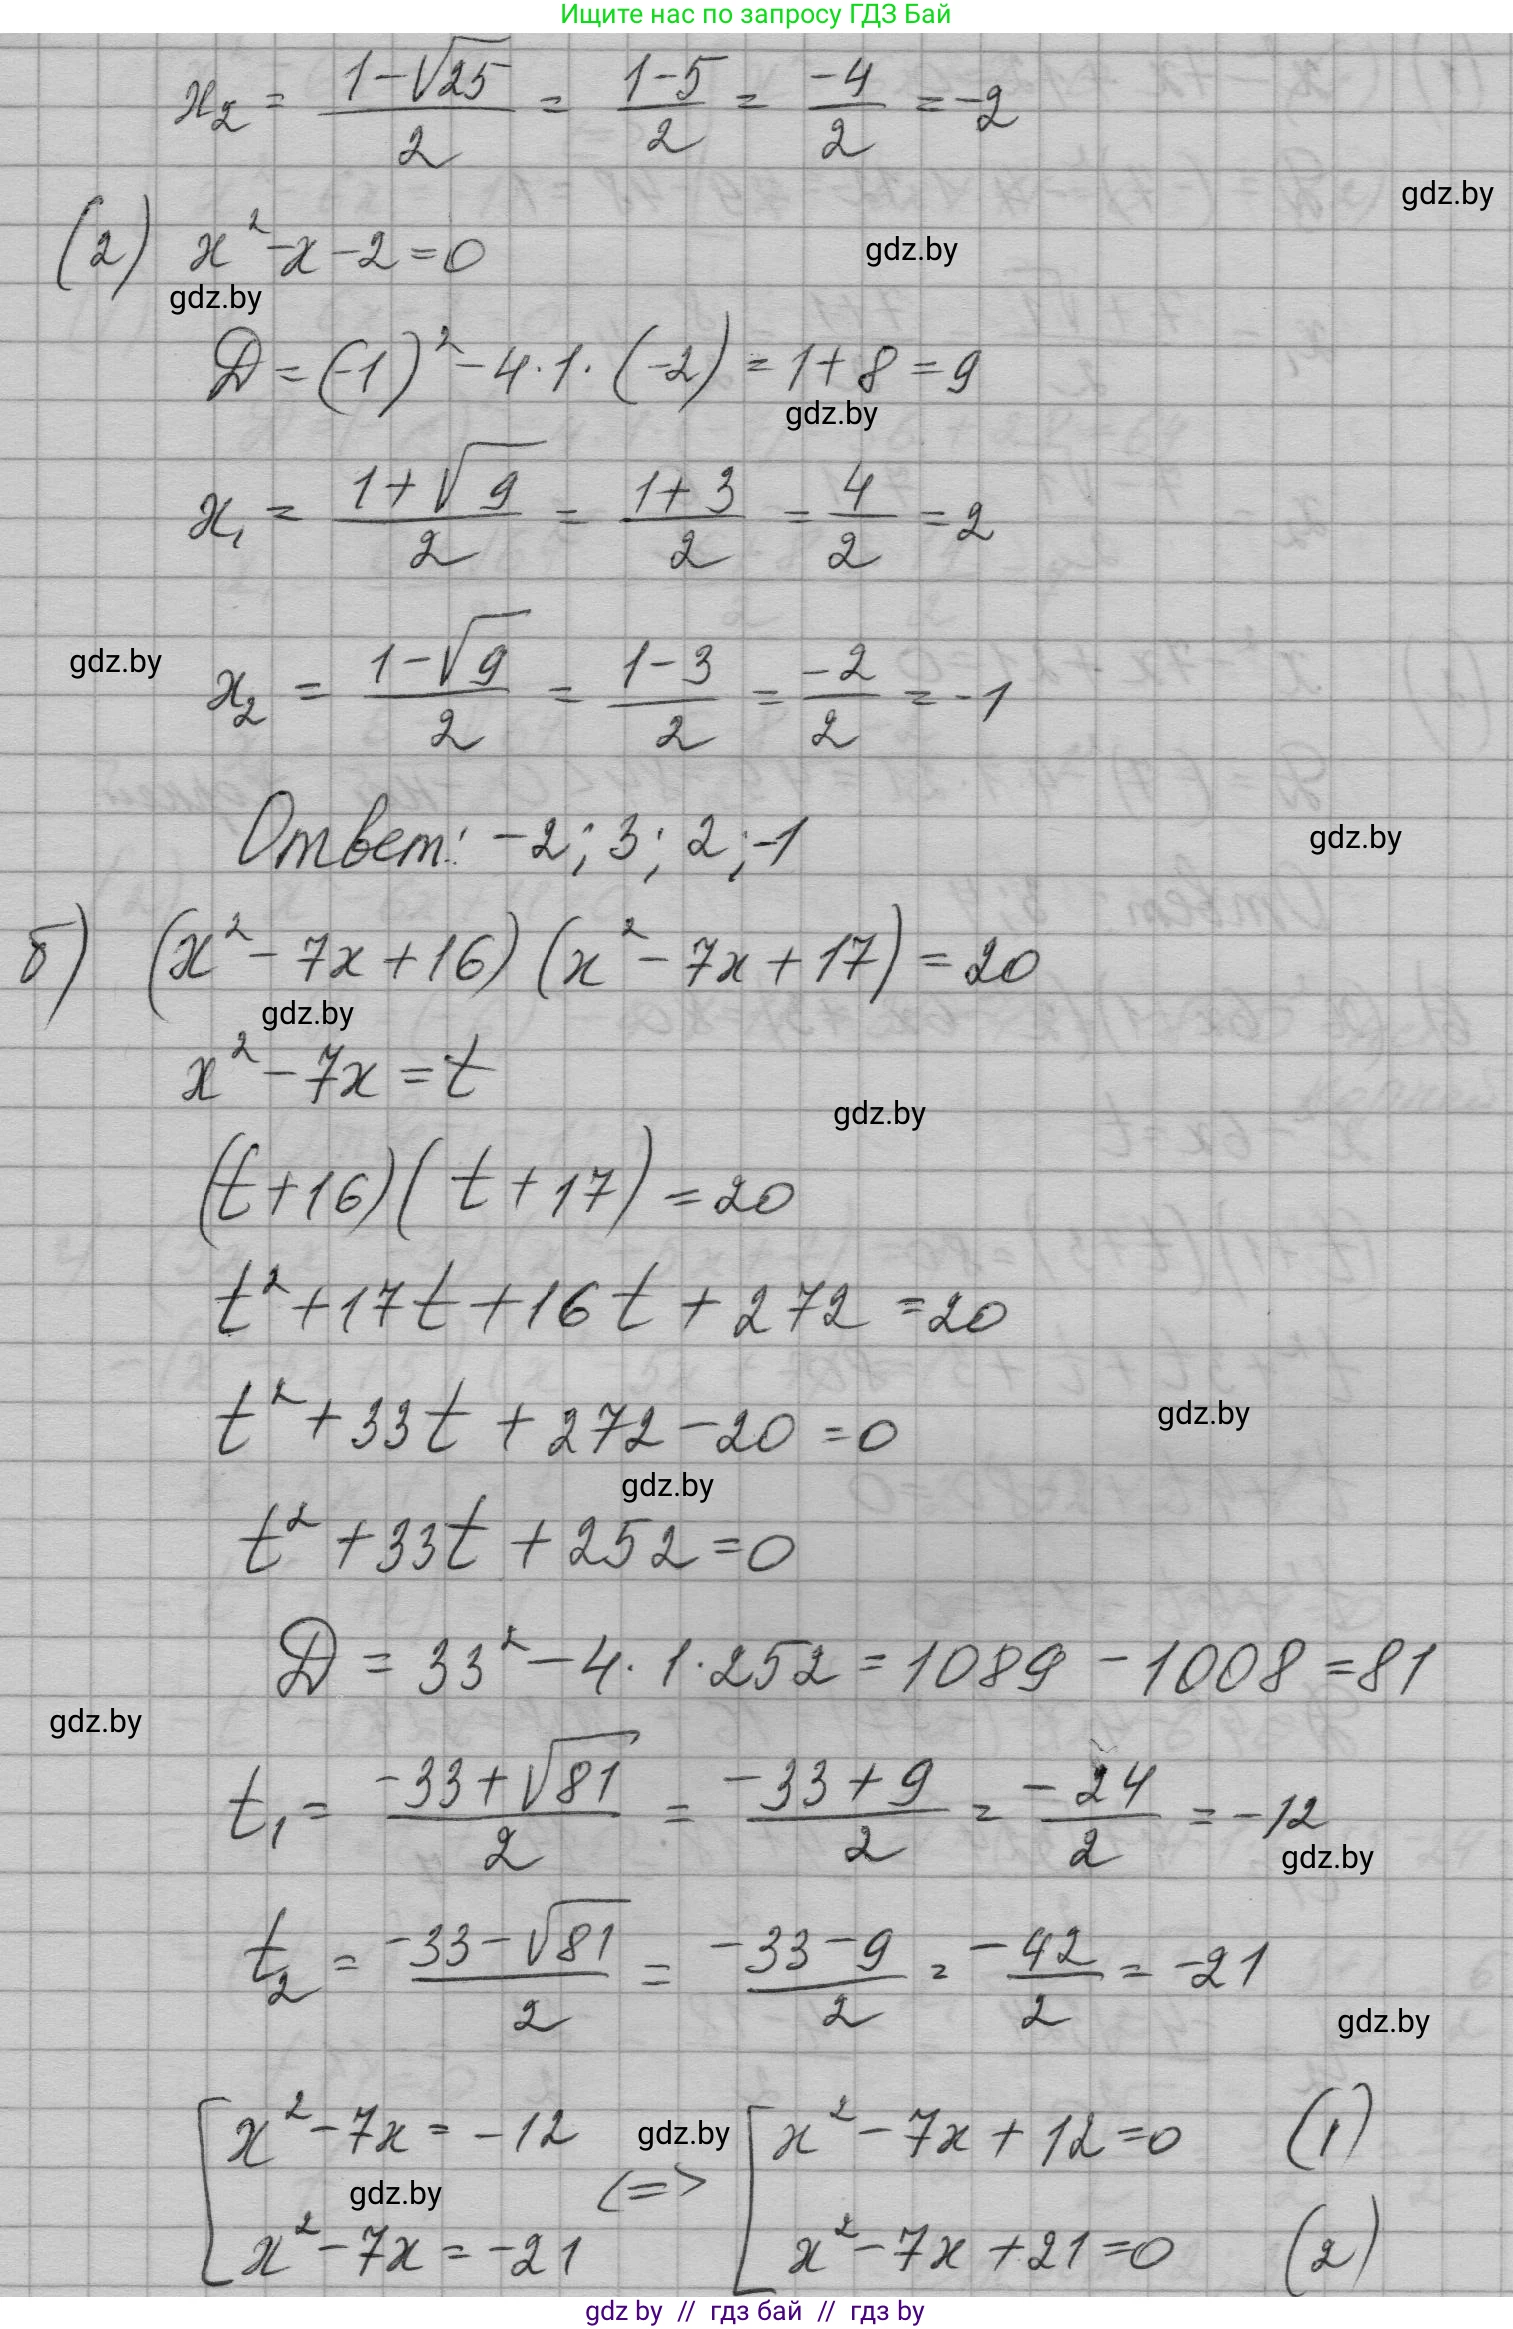 Ищите нас по запросу ГДЗ Бай
x₂ = (1-√25)/2 = (1-5)/2 = -4/2 = -2
gdz.by
(2) x²-x-2=0
gdz.by
gdz.by
D=(-1)²-4·1·(-2)=1+8=9
gdz.by
x₁ = (1+√9)/2 = (1+3)/2 = 4/2 = 2
gdz.by
x₂ = (1-√9)/2 = (1-3)/2 = -2/2 = -1
Ответ: -2; 3; 2; -1
gdz.by
б) (x²-7x+16)(x²-7x+17)=20
gdz.by
x²-7x=t
gdz.by
(t+16)(t+17)=20
t²+17t+16t+272=20
t²+33t+272-20=0
gdz.by
gdz.by
t²+33t+252=0
D=33²-4·1·252=1089-1008=81
gdz.by
t₁ = (-33+√81)/2 = (-33+9)/2 = -24/2 = -12
gdz.by
t₂ = (-33-√81)/2 = (-33-9)/2 = -42/2 = -21
gdz.by
[x²-7x=-12 <=> [x²-7x+12=0 (1)
gdz.by
gdz.by
x²-7x=-21 x²-7x+21=0 (2)
gdz by // гдз бай // гдз by